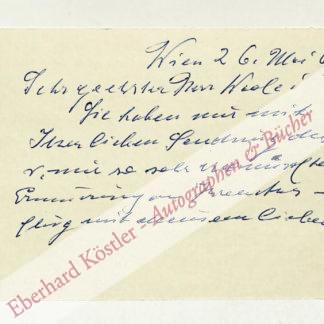 Wien 26. Mai
Sehr geehrter Herr
Sie haben mir mit
Ihrer lieben Sendung
mir so sehr
Erinnerung an
flug mit meinem lieben
Eberhard Köstler - Autographen & Bücher